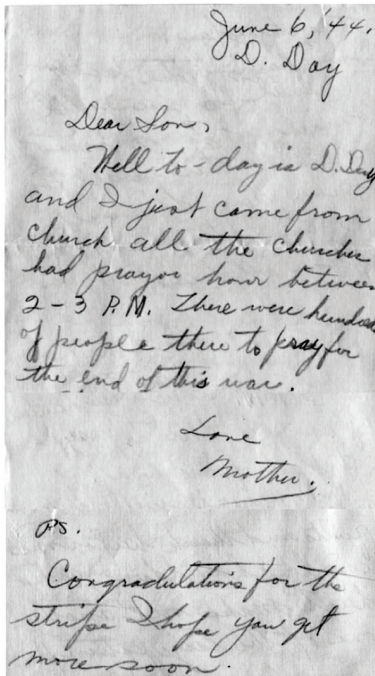 June 6, '44.
D. Day
Dear Son,
Well to-day is D. Day
and I just came from
church all the churches
had prayor hour between
2-3 P.M. There were hundreds
of people there to pray for
the end of this war.
Love
Mother.
P.S.
Congradulations for the
stripe I hope you get
more soon.